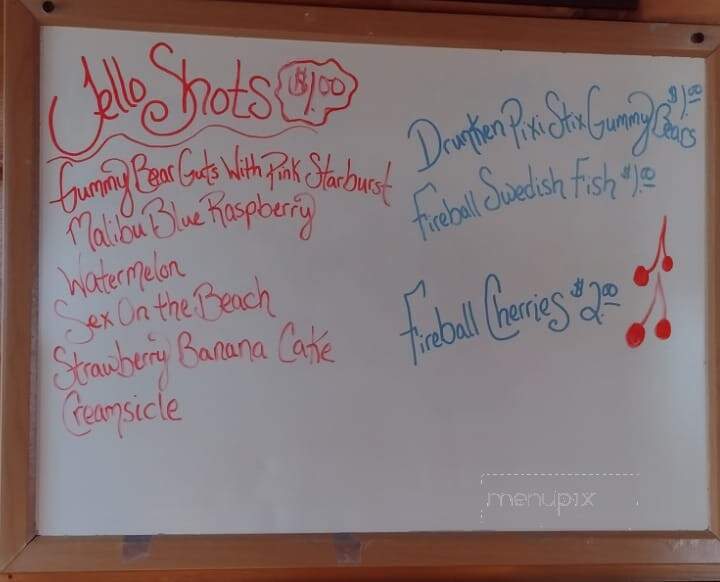 Jello Shots $1.00
Gummy Bear Guts With Pink Starburst
Malibu Blue Raspberry
Watermelon
Sex On the Beach
Strawberry Banana Cake
Creamsicle
Drunken Pixi Stix Gummy Bears $1.00
Fireball Swedish Fish $1.00
Fireball Cherries $2.00
menupix